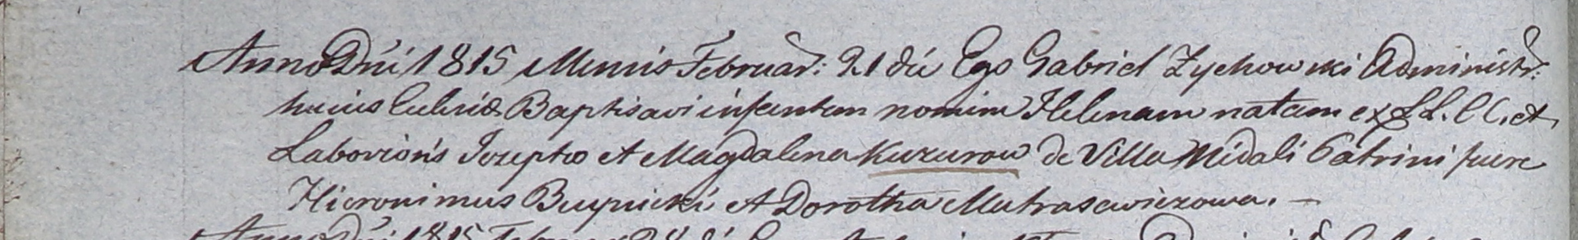 Anno Dni 1815 Mensis Februar: 21 die Ego Gabriel Zychowski Administr:
huius Ecclesiæ Baptisavi infantem nomine Helenam natam ex LL. CC. et
Laboriosis Josepho et Magdalena Kuzurow de Villa Midali Patrini fuere
Hieronimus et Dorotha
Anno Dni 1815